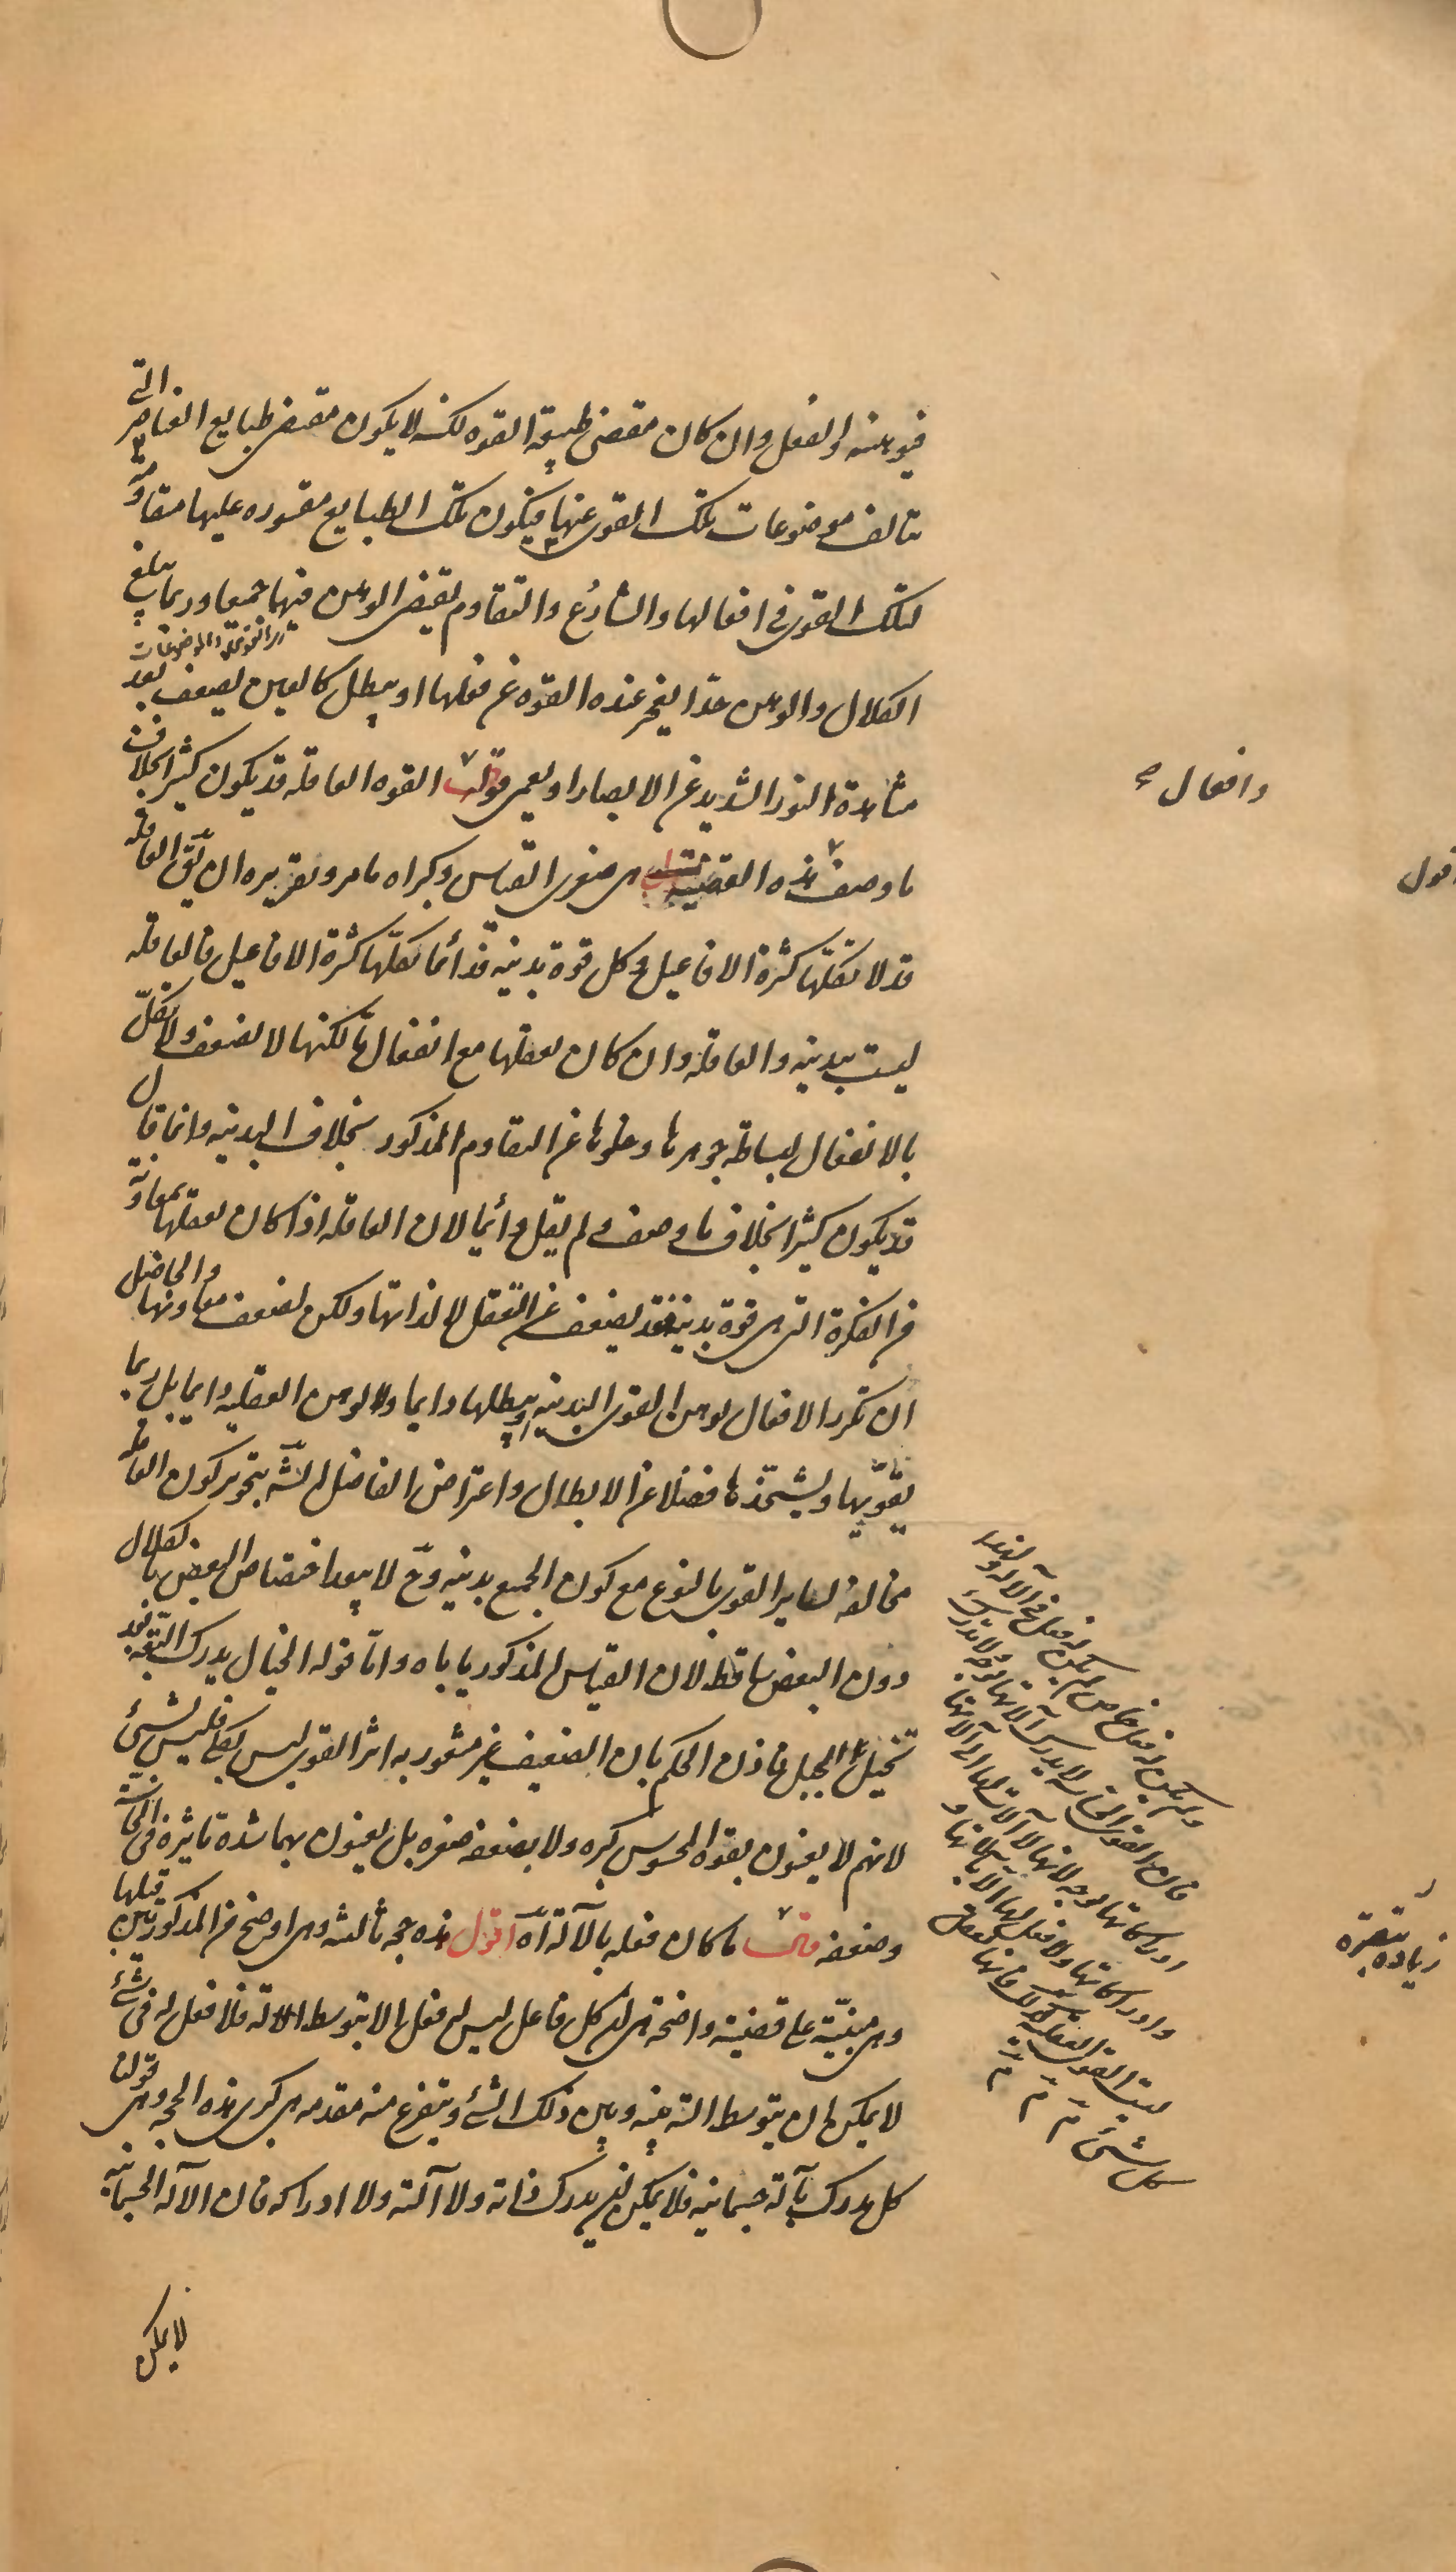 فيوهنه والفعل وان كان مقتضى طبيعة القوه لكنه لا يكون مقتضى طبايع العناصر التى
تتالف موضوعات تلك القوى عنها فيكون تلك الطبايع مقسوره عليها مقاومة
لتلك القوى فى افعالها والتنازع والتقاوم يقتضى الوهن فيهما جميعا وربما يبلغ
الكلال والوهن حدا يعجز عنده القوه عن فعلها او يبطل كالعين يضعف بعد
مشاهدة النور الشديد عن الابصار او يعمى قوله القوه العاقله قد يكون كثيرا بخلاف
ما وصف هذه القضيه هى صغرى القياس وكبراه ما مر وتقريره ان يق العاقله
قد لا تكلّها كثرة الافاعيل وكل قوة بدنيه فدائما تكلّها كثرة الافاعيل فالعاقله
ليست ببدنيه والعاقله وان كان تعقلها مع انفعال ما لكنها لا تضعف ولا تكلّ
بالانفعال لبساطة جوهرها وخلوها عن التقاوم المذكور بخلاف البدنيه وانما قال
قد يكون كثيرا بخلاف ما وصف ولم يقل دائما لان العاقله اذا كان تعقلها بمعاونة
من الفكرة التى هى قوة بدنيه فقد يضعف عن التعقل لا لذاتها ولكن لضعف معاونها والحاصل
ان تكرر الافعال يوهن القوى البدنيه او يبطلها دايما ولا يوهن العقليه دايما بل ربما
يقوّيها ويشحذها فضلا عن الابطال واعتراض الفاضل الش بتجويز كون العاقله
مخالفه لساير القوى بالنوع مع كون الجميع بدنيه وح لا يبعد اختصاص البعض بالكلال
دون البعض ساقط لان القياس المذكور ياباه واما قوله الخيال يدرك البقه بعد
تخيل الجبل فاذن الحكم بان الضعيف غير مشعور به اثر القوى ليس بكلى فليس بشئ
لانهم لا يعنون بقوة المحسوس كبره ولا بضعفه صغره بل يعنون بهما شدة تاثيره فى الحاسة
وضعفه قال ما كان فعله بالآلة آه اقول هذه حجه ثالثه وهى اوضح من المذكورتين قبلها
وهى مبنيّة على قضية واضحة هى ان كل فاعل ليس له فعل الا بتوسط الالة فلا فعل له فى شئ
لا يمكن ان يتوسط الته بينه وبين ذلك الشئ ويتفرع منه مقدمه هى كبرى هذه الحجه وهى قولنا
كل مدرك بآلة جسمانيه فلا يمكن ان يدرك ذاته ولا آلته ولا ادراكه فان الآله الجسمانيه
لا يمكن
وافعال
اقول
زيادة تبصرة
ولم يكن له فعل خاص لم يكن له فعل فى الآله ولهذا
فان القوى الحساسه لا يدرك آلاتها بوجه ولا تدرك
ادراكاتها بوجه لانها لا آلات لها الى آلاتها
وادراكاتها ولا فعل لها الا بآلاتها و
ليست القوى العقليه كذلك فانها تعقل
كل شئ